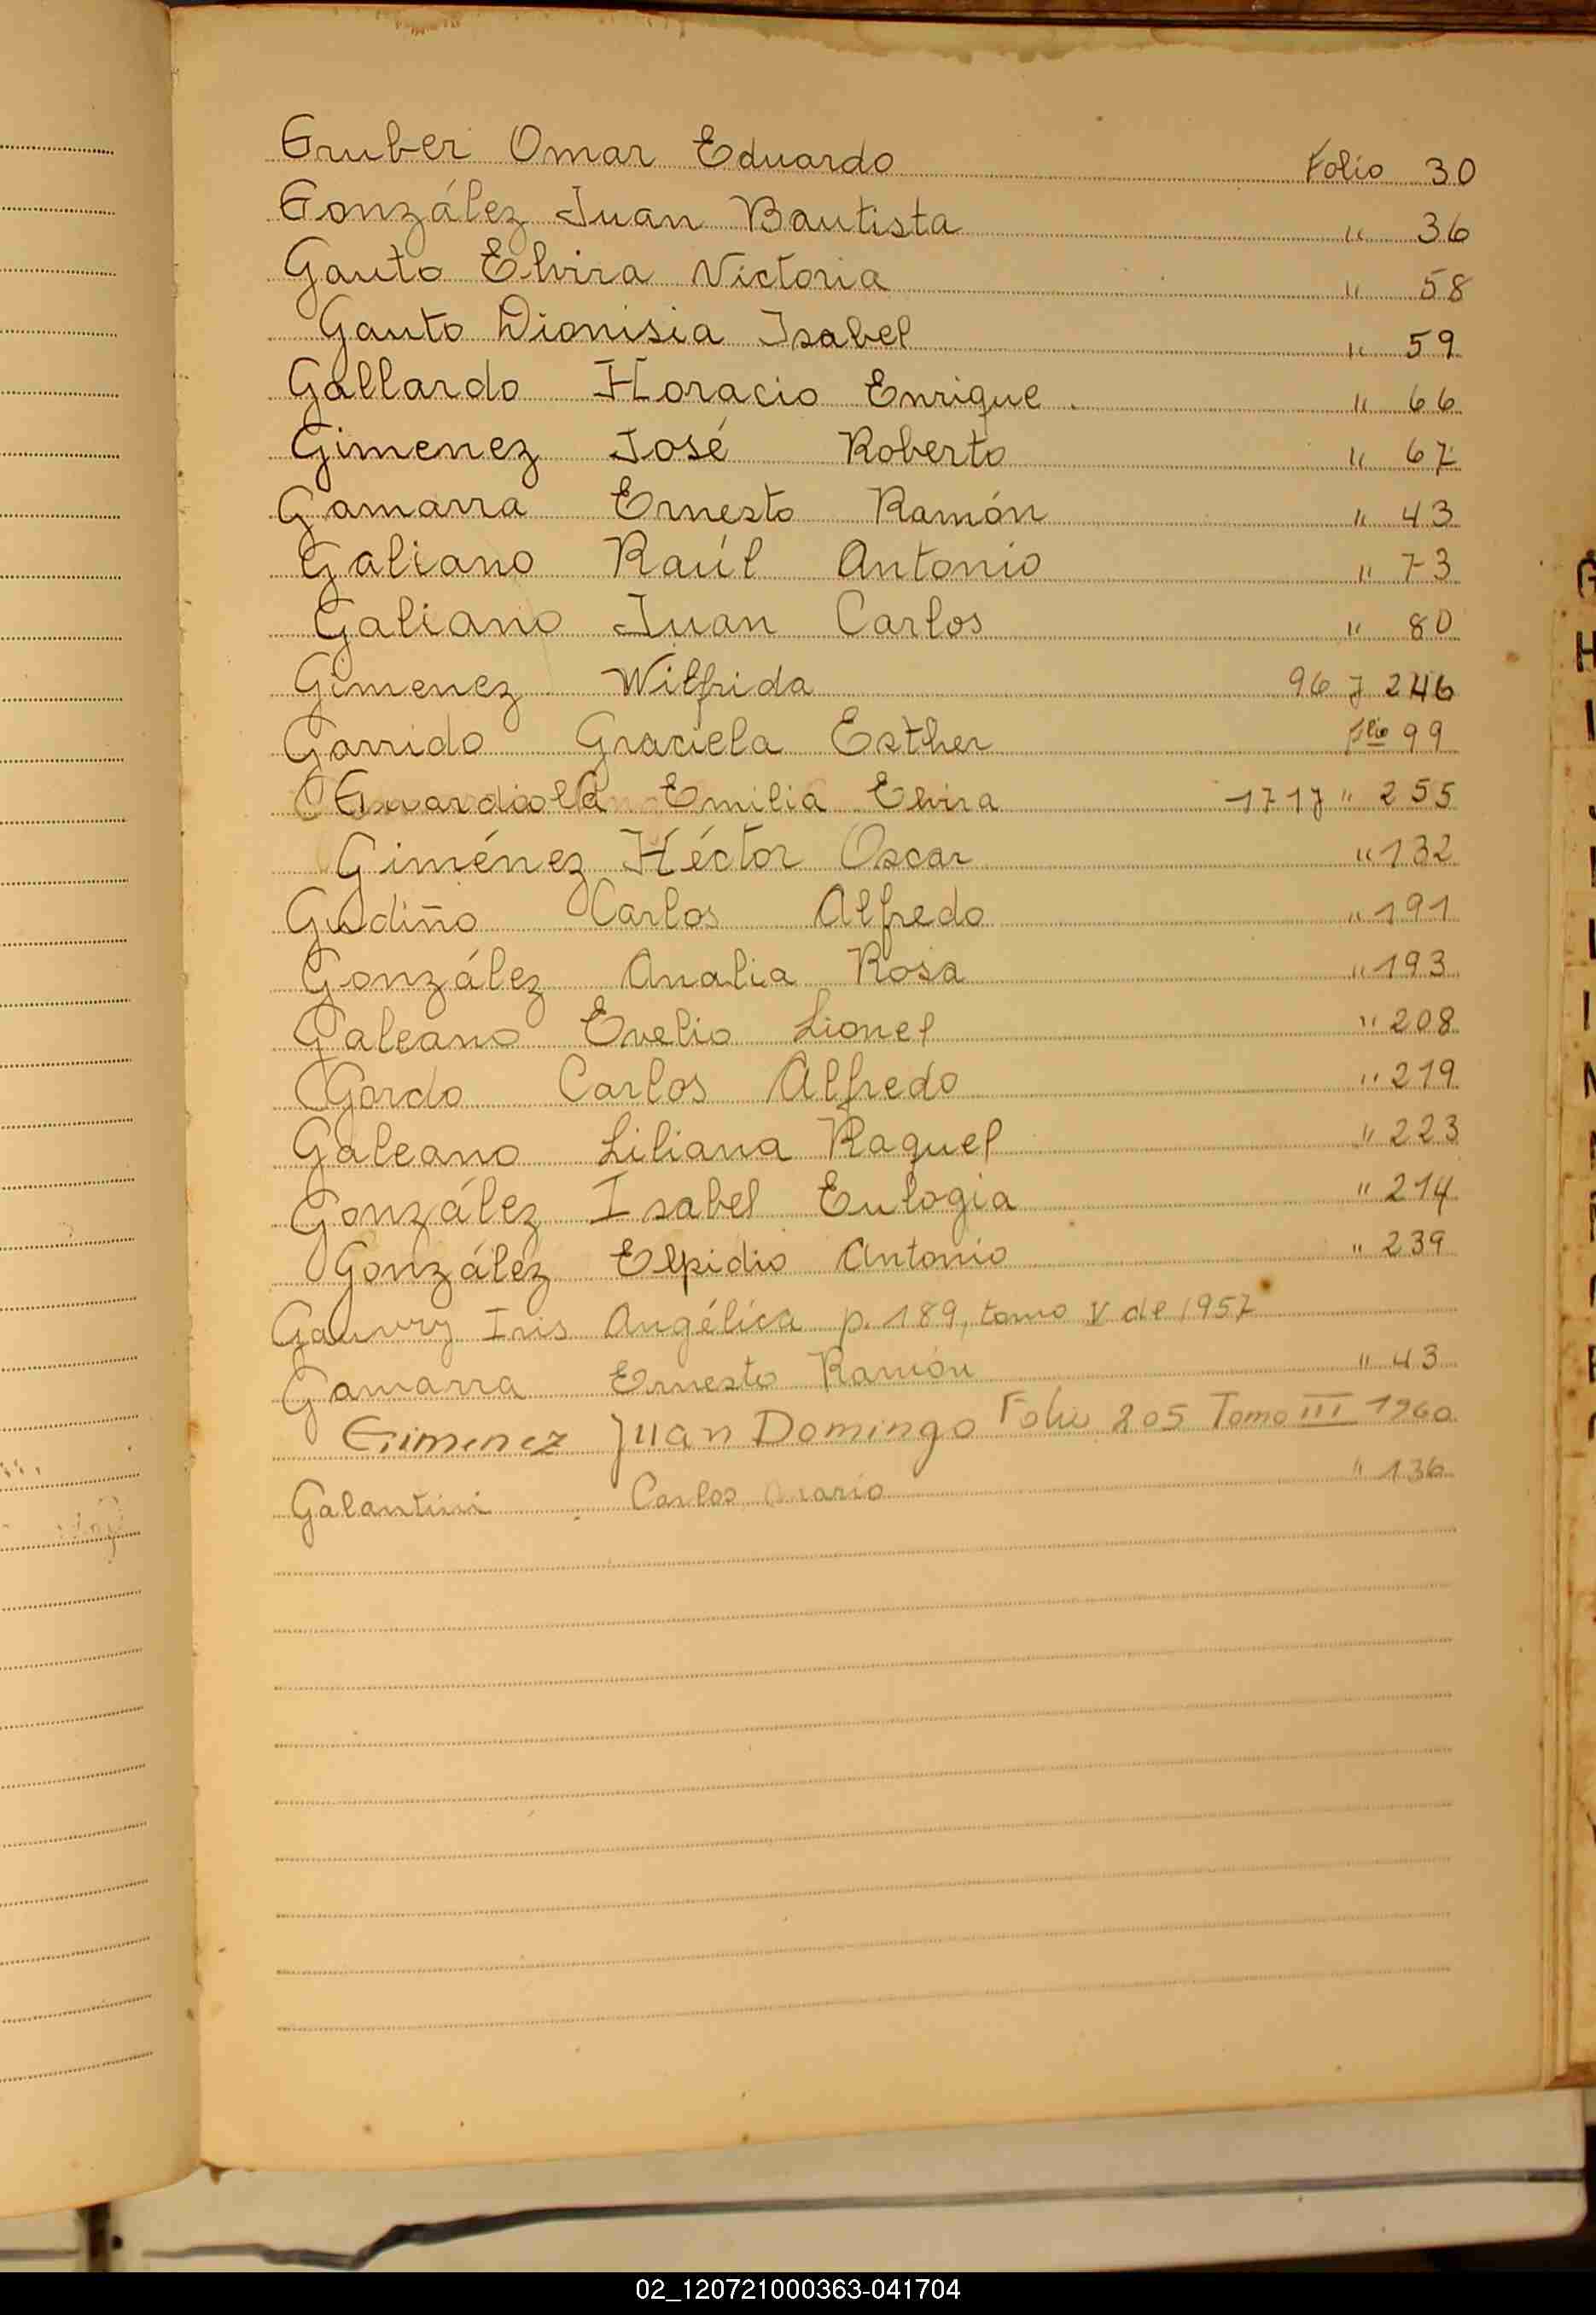 Gruber Omar Eduardo Folio 30
González Juan Bautista " 36
Gauto Elvira Victoria " 58
Gauto Dionisia Isabel " 59
Gallardo Horacio Enrique. " 66
Gimenez José Roberto " 67
Gamarra Ernesto Ramón " 43
Galiano Raúl Antonio " 73
Galiano Juan Carlos " 80
Gimenez Wilfrida 96 y 246
Garrido Graciela Esther flio 99
Guardiola Emilia Elvira 171 y " 255
Giménez Héctor Oscar " 132
Gudiño Carlos Alfredo " 191
González Analia Rosa " 193
Galeano Evelio Lionel " 208
Gordo Carlos Alfredo " 219
Galeano Liliana Raquel " 223
González Isabel Eulogia " 214
González Elpidio Antonio " 239
Gauvry Iris Angélica p. 189, tomo V de 1957
Gamarra Ernesto Ramón " 43
Gimenez Juan Domingo Folio 205 Tomo III 1960
Galantini Carlos " 136
G
H
I
02_120721000363-041704